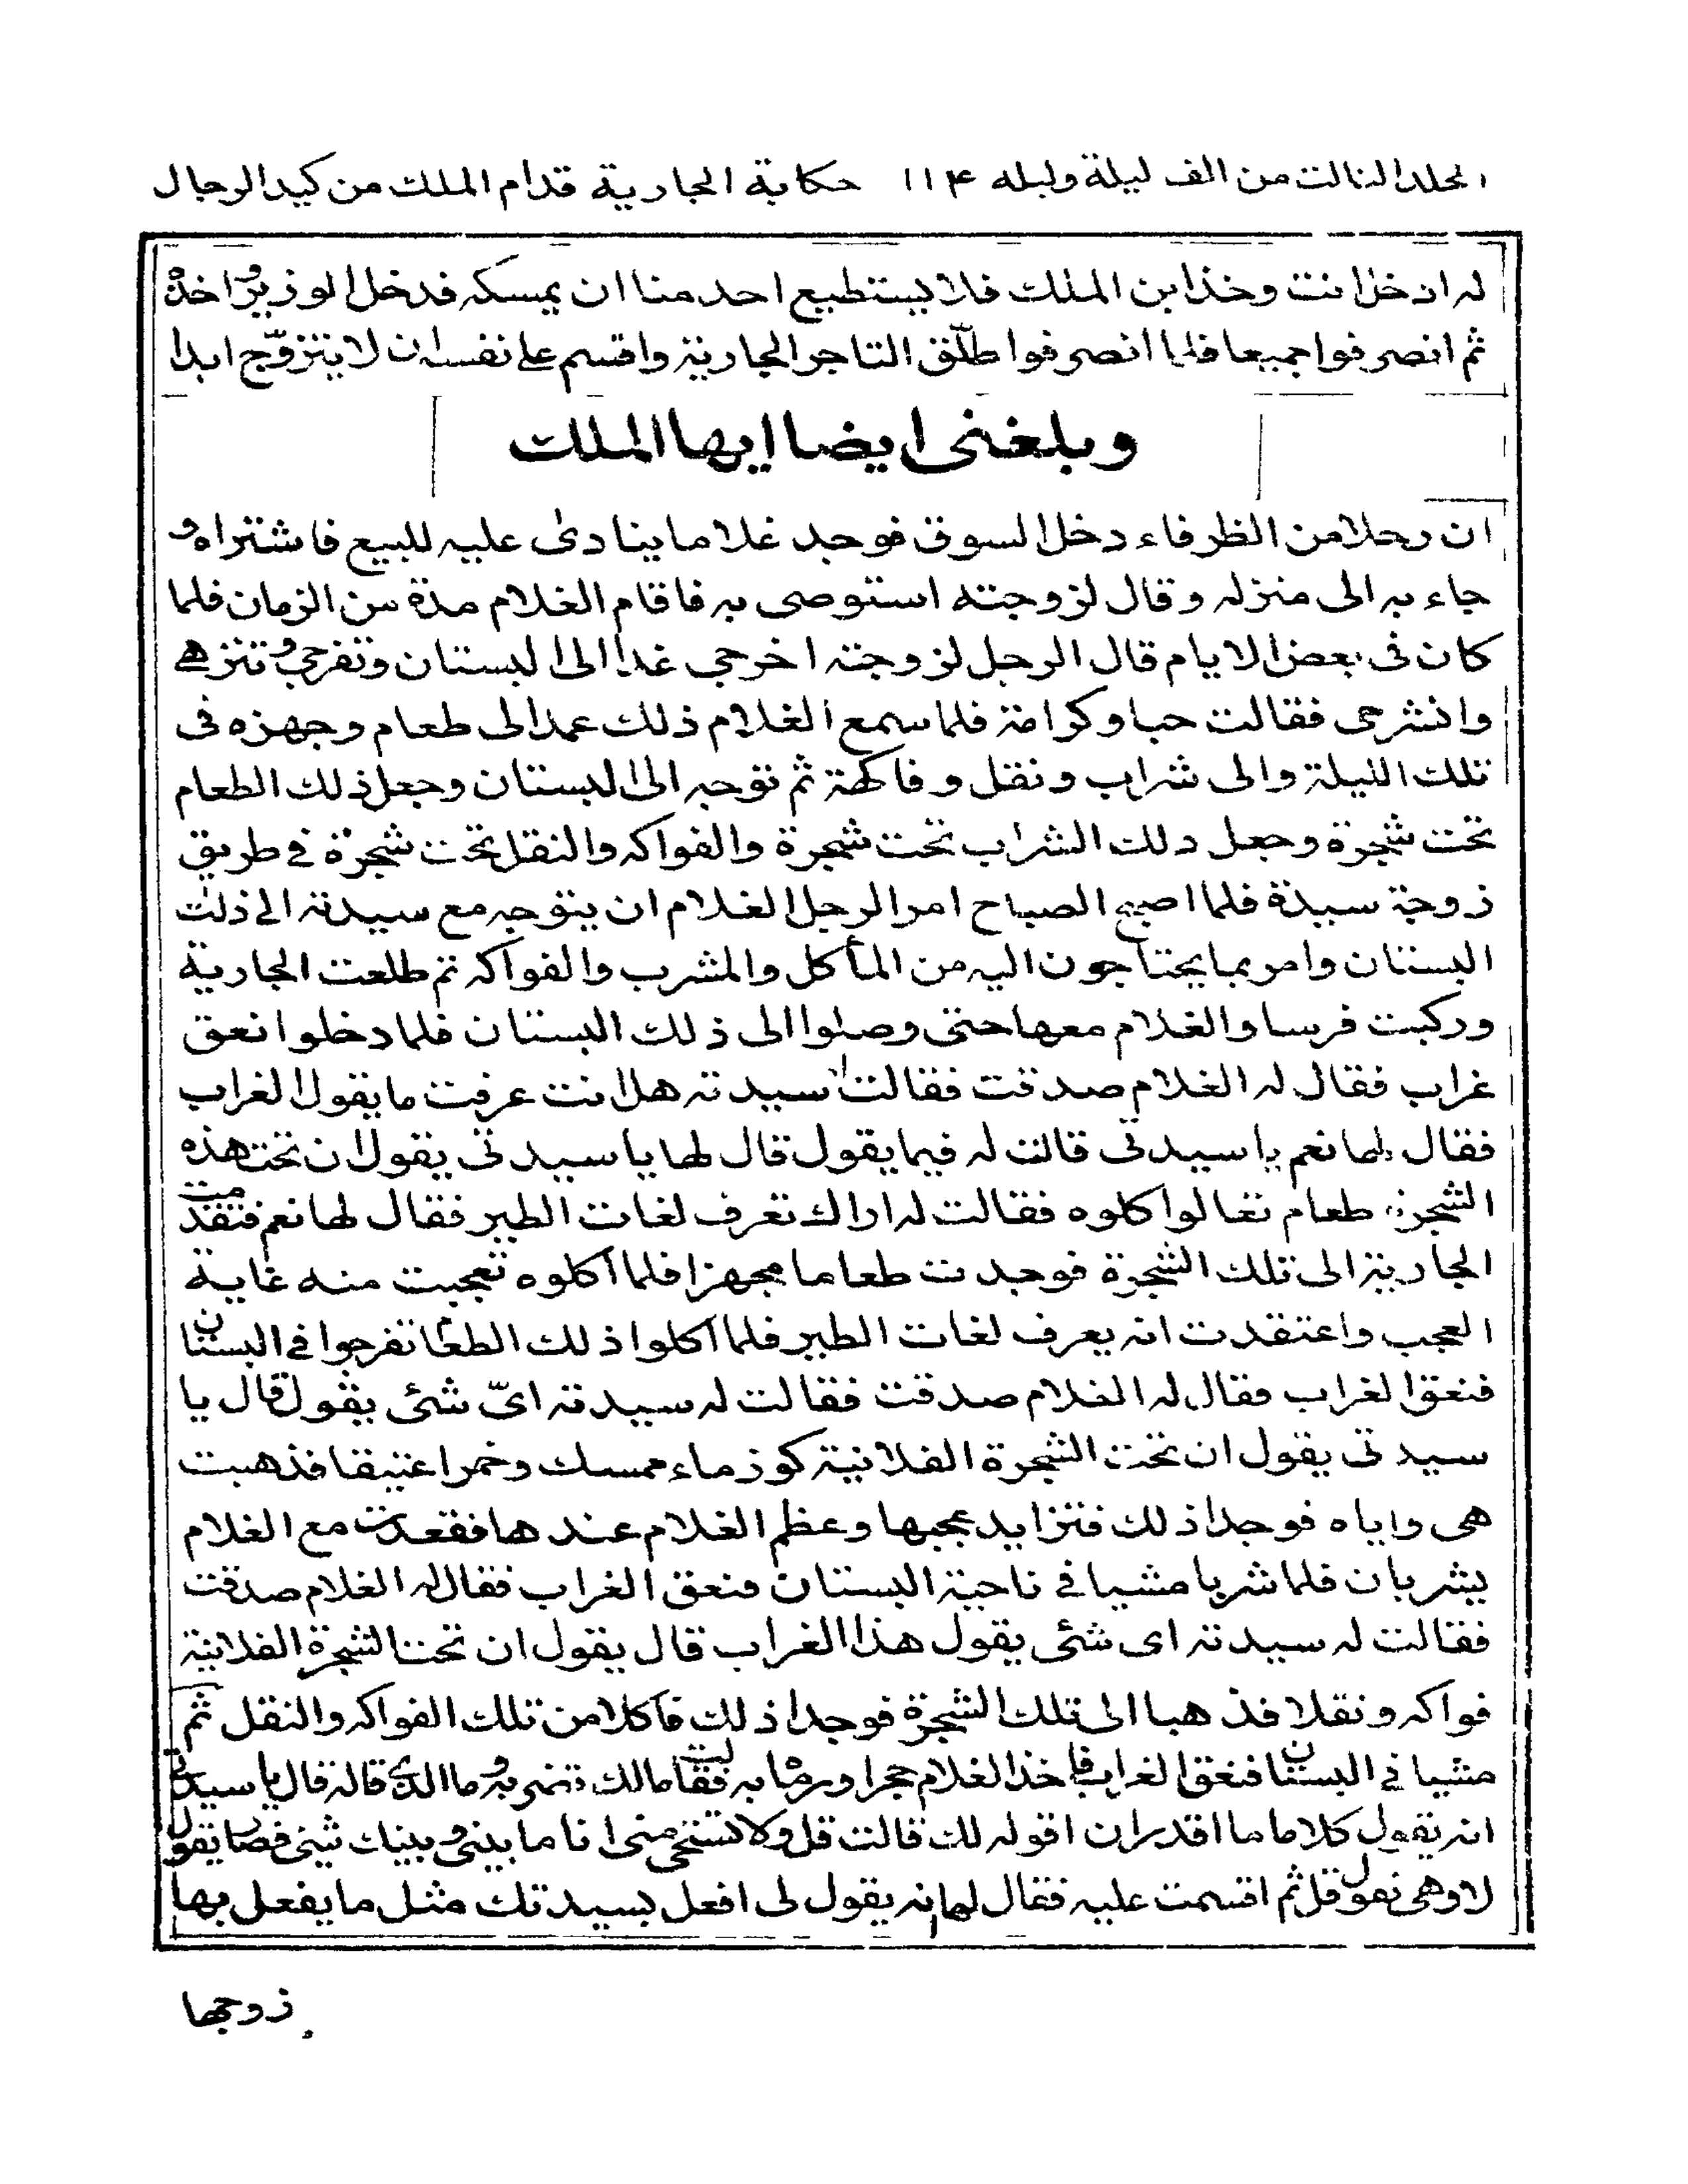 المجلد الثالث من الف ليلة وليله ١١۴ حكاية الجارية قدام الملك من كيد الرجال
له ادخل انت وخذ ابن الملك فلا يستطيع احد منا ان يمسكه فدخل الوزير واخذه
ثم انصرفوا جميعا فلما انصرفوا طلّق التاجر الجارية واقسم على نفسه ان لا يتزوّج ابدا
وبلغنى ايضا ايها الملك
ان رجلا من الظرفاء دخل السوق فوجد غلاما ينادى عليه للبيع فاشتراه و
جاء به الى منزله وقال لزوجته استوصى به فاقام الغلام مدة من الزمان فلما
كان فى بعض الايام قال الرجل لزوجته اخرجى غدا الى البستان وتفرجى وتنزهى
وانشرحى فقالت حبا وكرامة فلما سمع الغلام ذلك عمد الى طعام وجهزه فى
تلك الليلة والى شراب ونقل وفاكهة ثم توجه الى البستان وجعل ذلك الطعام
تحت شجرة وجعل ذلك الشراب تحت شجرة والفواكه والنقل تحت شجرة في طريق
زوجة سيده فلما اصبح الصباح امر الرجل الغلام ان يتوجه مع سيدته الى ذلك
البستان وامر بما يحتاجون اليه من المأكل والمشرب والفواكه ثم طلعت الجارية
وركبت فرسا والغلام معها حتى وصلوا الى ذلك البستان فلما دخلوا نعق
غراب فقال له الغلام صدقت فقالت له سيدته هل انت عرفت ما يقول الغراب
فقال لها نعم يا سيدتى قالت له فيما يقول قال لها يا سيدتى يقول ان تحت هذه
الشجرة طعام تعالوا كلوه فقالت له اراك تعرف لغات الطير فقال لها نعم فتقدمت
الجارية الى تلك الشجرة فوجدت طعاما مجهزا فلما اكلوه تعجبت منه غاية
العجب واعتقدت انه يعرف لغات الطير فلما اكلوا ذلك الطعام تفرجوا في البستان
فنعق الغراب فقال له الغلام صدقت فقالت له سيدته اىّ شئى يقول قال يا
سيدتى يقول ان تحت الشجرة الفلانية كوز ماء ممسك وخمرا عتيقا فذهبت
هى واياه فوجدا ذلك فتزايد عجبها وعظم الغلام عندها فقعدت مع الغلام
يشربان فلما شربا مشيا في ناحية البستان فنعق الغراب فقال له الغلام صدقت
فقالت له سيدته اى شئى يقول هذا الغراب قال يقول ان تحت الشجرة الفلانية
فواكه ونقلا فذهبا الى تلك الشجرة فوجدا ذلك فاكلا من تلك الفواكه والنقل ثم
مشيا في البستان فنعق الغراب فاخذ الغلام حجرا ورماه به فقالت مالك تضربه وما الذى قاله قال يا سيدتى
انه يقول كلاما ما اقدر ان اقوله لك قالت قل ولا تستحى منى انا ما بينى وبينك شيئى فصار يقول
لا وهى تقول قل ثم اقسمت عليه فقال لها انه يقول لى افعل بسيدتك مثل ما يفعل بها
زوجها